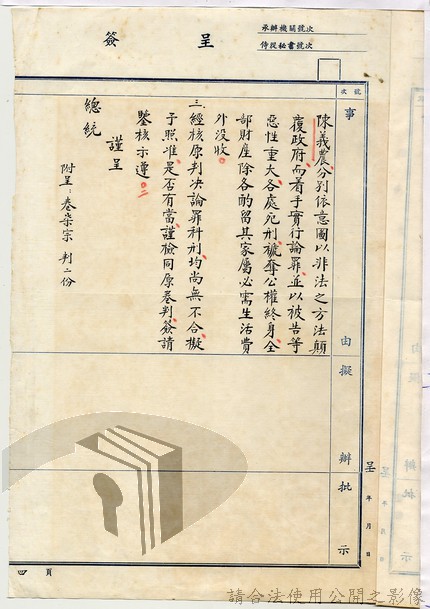 簽　呈
承辦機關號次
侍從秘書號次
號次
事　由　擬　辦　批　示
呈　年　月　日
陳義農分別依意圖以非法之方法顛
覆政府而着手實行論罪並以被告等
惡性重大各處死刑褫奪公權終身全
部財產除各酌留其家屬必需生活費
外沒收
三、經核原判決論罪科刑均尚無不合擬
予照准是否有當謹檢同原卷判簽請
鑒核示遵
謹呈
總統
附呈：卷柒宗　判二份
四　頁
請合法使用公開之影像